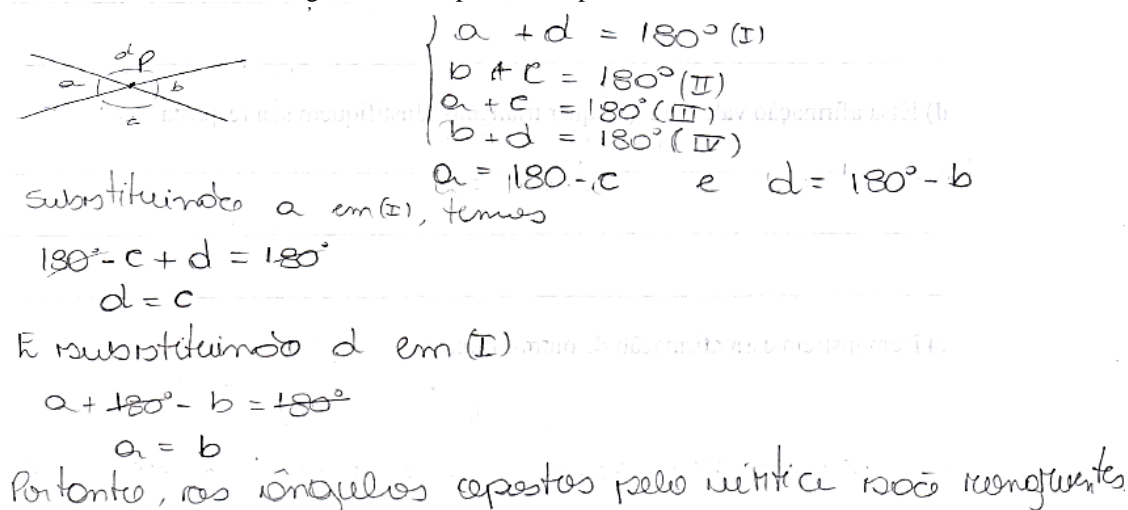 a + d = 180° (I)
b + c = 180° (II)
a + c = 180° (III)
b + d = 180° (IV)
d P
a b
c
a = 180 - c e d = 180° - b
Substituindo a em (I), temos
180° - c + d = 180°
d = c
E substituindo d em (I)
a + 180° - b = 180°
a = b
Portanto, os ângulos opostos pelo vértice são congruentes